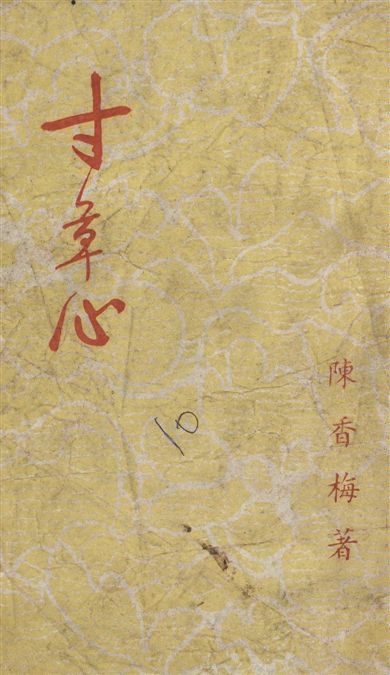 寸草心
陳香梅著
10